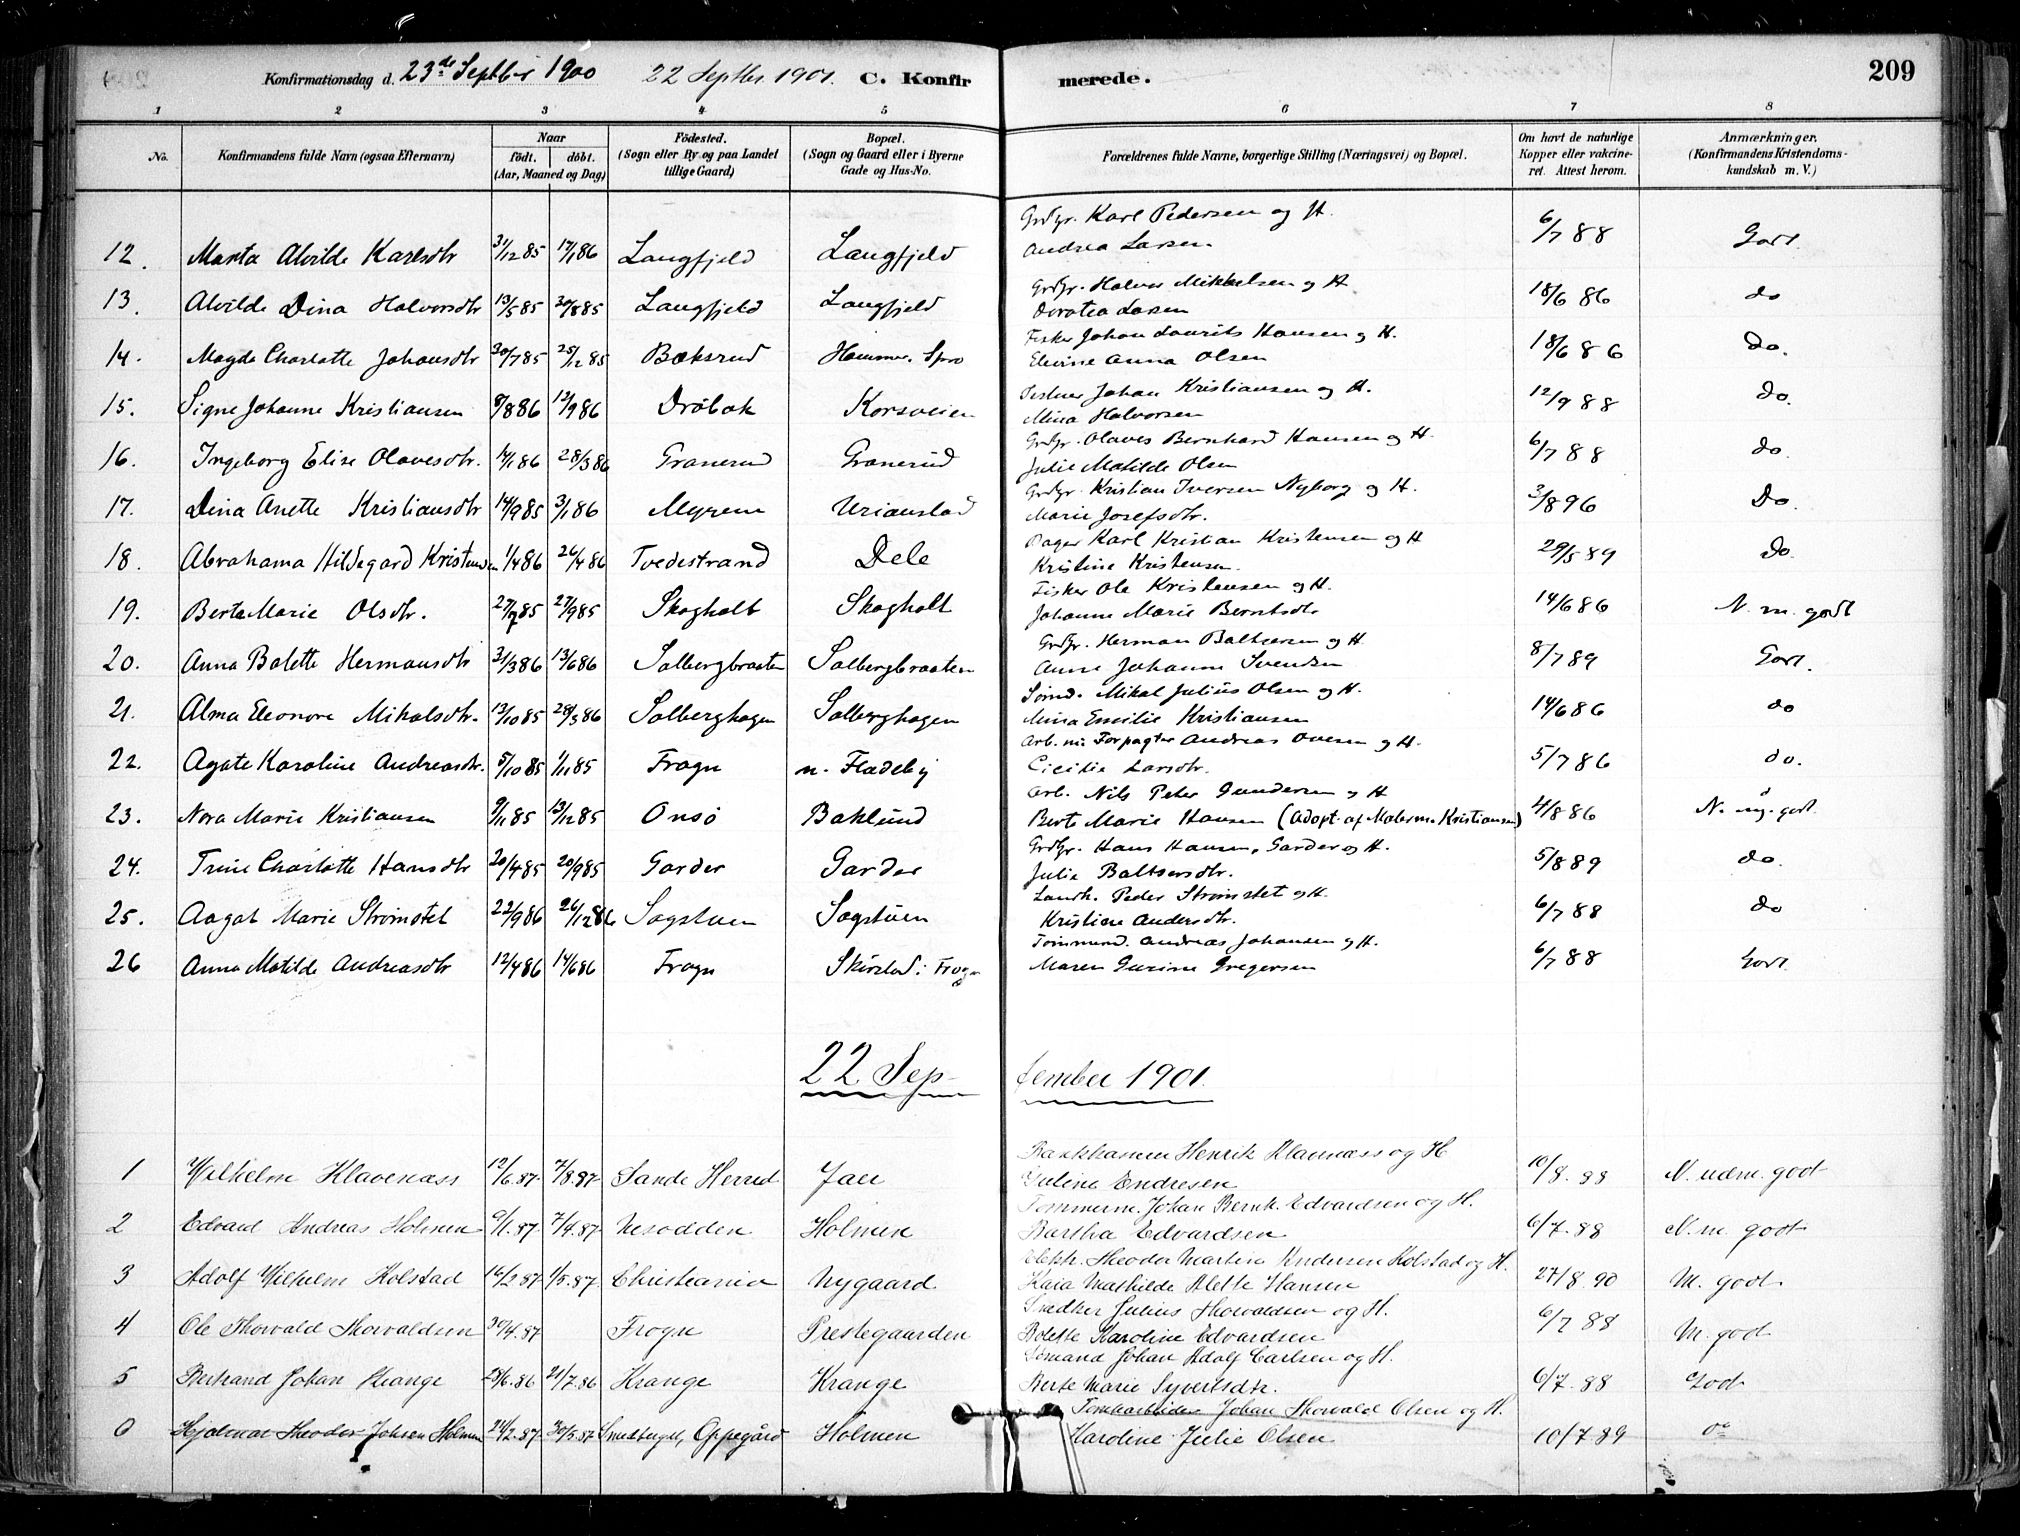 Konfirmationsdag d. 23de Septbr 1900 22 Septbr. 1901. C. Konfirmerede. 209
1 2 3 4 5 6 7 8
No. Konfirmandens fulde Navn (ogsaa Efternavn) Naar født. døbt. (Aar, Maaned og Dag) Födested. (Sogn eller By og paa Landet tillige Gaard) Bopæl. (Sogn og Gaard eller i Byerne Gade og Hus-No. Forældrenes fulde Navne, borgerlige Stilling (Næringsvei) og Bopæl. Om havt de naturlige Kopper eller vakcineret. Attest herom. Anmærkninger. (Konfirmandens Kristendomskundskab m. V.)
Grdbr. Karl Pedersen og H.
12. Marta Alvilde Karlsdtr 31/12 85 17/1 86 Langfjeld Langfjeld Andrea Larsen. 6/7 88 Godt.
Grdbr. Halvor Mikkelsen og H
13. Alvilde Dina Halvorsdtr 13/5 85 30/8 85 Langfjeld Langfjeld Dorotea Larsen 18/6 86 do
Fisker Johan Laurits Hansen og H.
14. Magda Charlotte Johansdtr 30/7 85 25/12 85 Bæksrud Hammer. Spro Elevine Anna Olsen 18/6 86 do.
Johan Kristiansen og H.
15. Signe Johanne Kristiansen 8/8 86 12/9 86 Drøbak Korsveien Mina Halvorsen 12/9 88 do.
Grdbr. Olaves Bernhard Hansen og H.
16. Ingeborg Elise Olavesdtr. 14/1 86 28/3 86 Granerud Granerud Julie Matilde Olsen 6/7 88 do.
Grdbr. Kristian Iversen Nyborg og H.
17. Dina Anette Kristiansdtr 14/9 85 3/1 86 Myrene Urianstad Marie Josefsdtr. 3/8 96 Do.
Bager Karl Kristian Kristensen og H
18. Abrahama Hildegard Kristensen 1/4 86 26/4 86 Tvedestrand Dele Kristine Kristensen. 29/5 89 do.
Fisker Ole Kristensen og H.
19. Berta Marie Olsdtr. 27/7 85 27/9 85 Skogholt Skogholt Johanne Marie Berntsdtr 14/6 86 N. m. godt
Grdbr. Herman Baltsersen og H.
20. Anna Bolette Hermansdtr 31/3 86 13/6 86 Solbergbraaten Solbergbraaten Anne Johanne Svendsen 8/7 89 Godt.
Sømd. Mikal Julius Olsen og H.
21. Alma Eleonore Mikalsdtr. 13/10 85 28/3 86 Solberghagen Solberghagen Mina Emilie Kristiansen 14/6 86 do
Arb. nu Forpagter Andreas Ovesen og H.
22. Agate Karoline Andreasdtr. 5/10 85 1/11 85 Frogn n. Fladeby Cicilie Larsdtr. 5/7 86 do.
Arb. Nils Peter Gundersen og H
23. Nora Marie Kristiansen 9/11 85 13/12 85 Onsø Baklund Berte Marie Hansen (adopt. af Malerm. Kristiansen) 4/8 86 N. mg. godt.
Grdbr. Hans Hansen, Garder og H.
24. Trine Charlotte Hansdtr 20/4 85 20/9 85 Garder Garder Julie Baltsersdtr. 5/8 89 do.
Landh. Peder Strømstet og H.
25. Aagot Marie Strømstet 22/9 86 26/12 86 Sogstuen Sogstuen Kristiane Andersdtr. 6/7 88 do
Tømmermd. Andreas Johansen og H.
26 Anna Matilde Andreasdtr 12/4 86 14/6 86 Frogn Skirstad i Frogn Maren Gurine Gregersen 6/7 88 Godt.
22 September 1901.
Henrik Klavenæss og H
1 Wilhelm Klavenæss 12/6.87. 7/8.87. Sande Herred Jaer Juline Endresen 10/8.88 N. udm. godt
Tømmerm. Johan Bernh. Edvardsen og H.
2 Edvard Andreas Holmen 9/1.87. 7/4.87. Nesodden Holmen Bertha Edvardsen 6/7.88 N. m. godt
Theodor Martin Andersen Kolstad og H.
3 Adolf Wilhelm Kolstad 16/2.87. 1/5.87. Christiania Nygaard Kaia Mathilde Alette Hansen 27/8.90 M. godt
Snedker Julius Thorvaldsen og H.
4 Ole Thorvald Thorvaldsen 30/4.87 Frogn Prestegaarden Bolette Karoline Edvardsen 6/7 88 M. godt
Sømand Johan Adolf Carlsen og H.
5 Bertrand Johan Krange 28/6.86 21/7.86 Krange Krange Berte Marie Syvertsdtr. 6/7.88 Godt
Tomtearbeider Johan Thorvald Olsen og H.
6 Hjalmar Theodor Johsen Holmen 24/2.87. 30/5.87 Smedhuget, Oppegård Holmen Karoline Julie Olsen 10/7.89 do